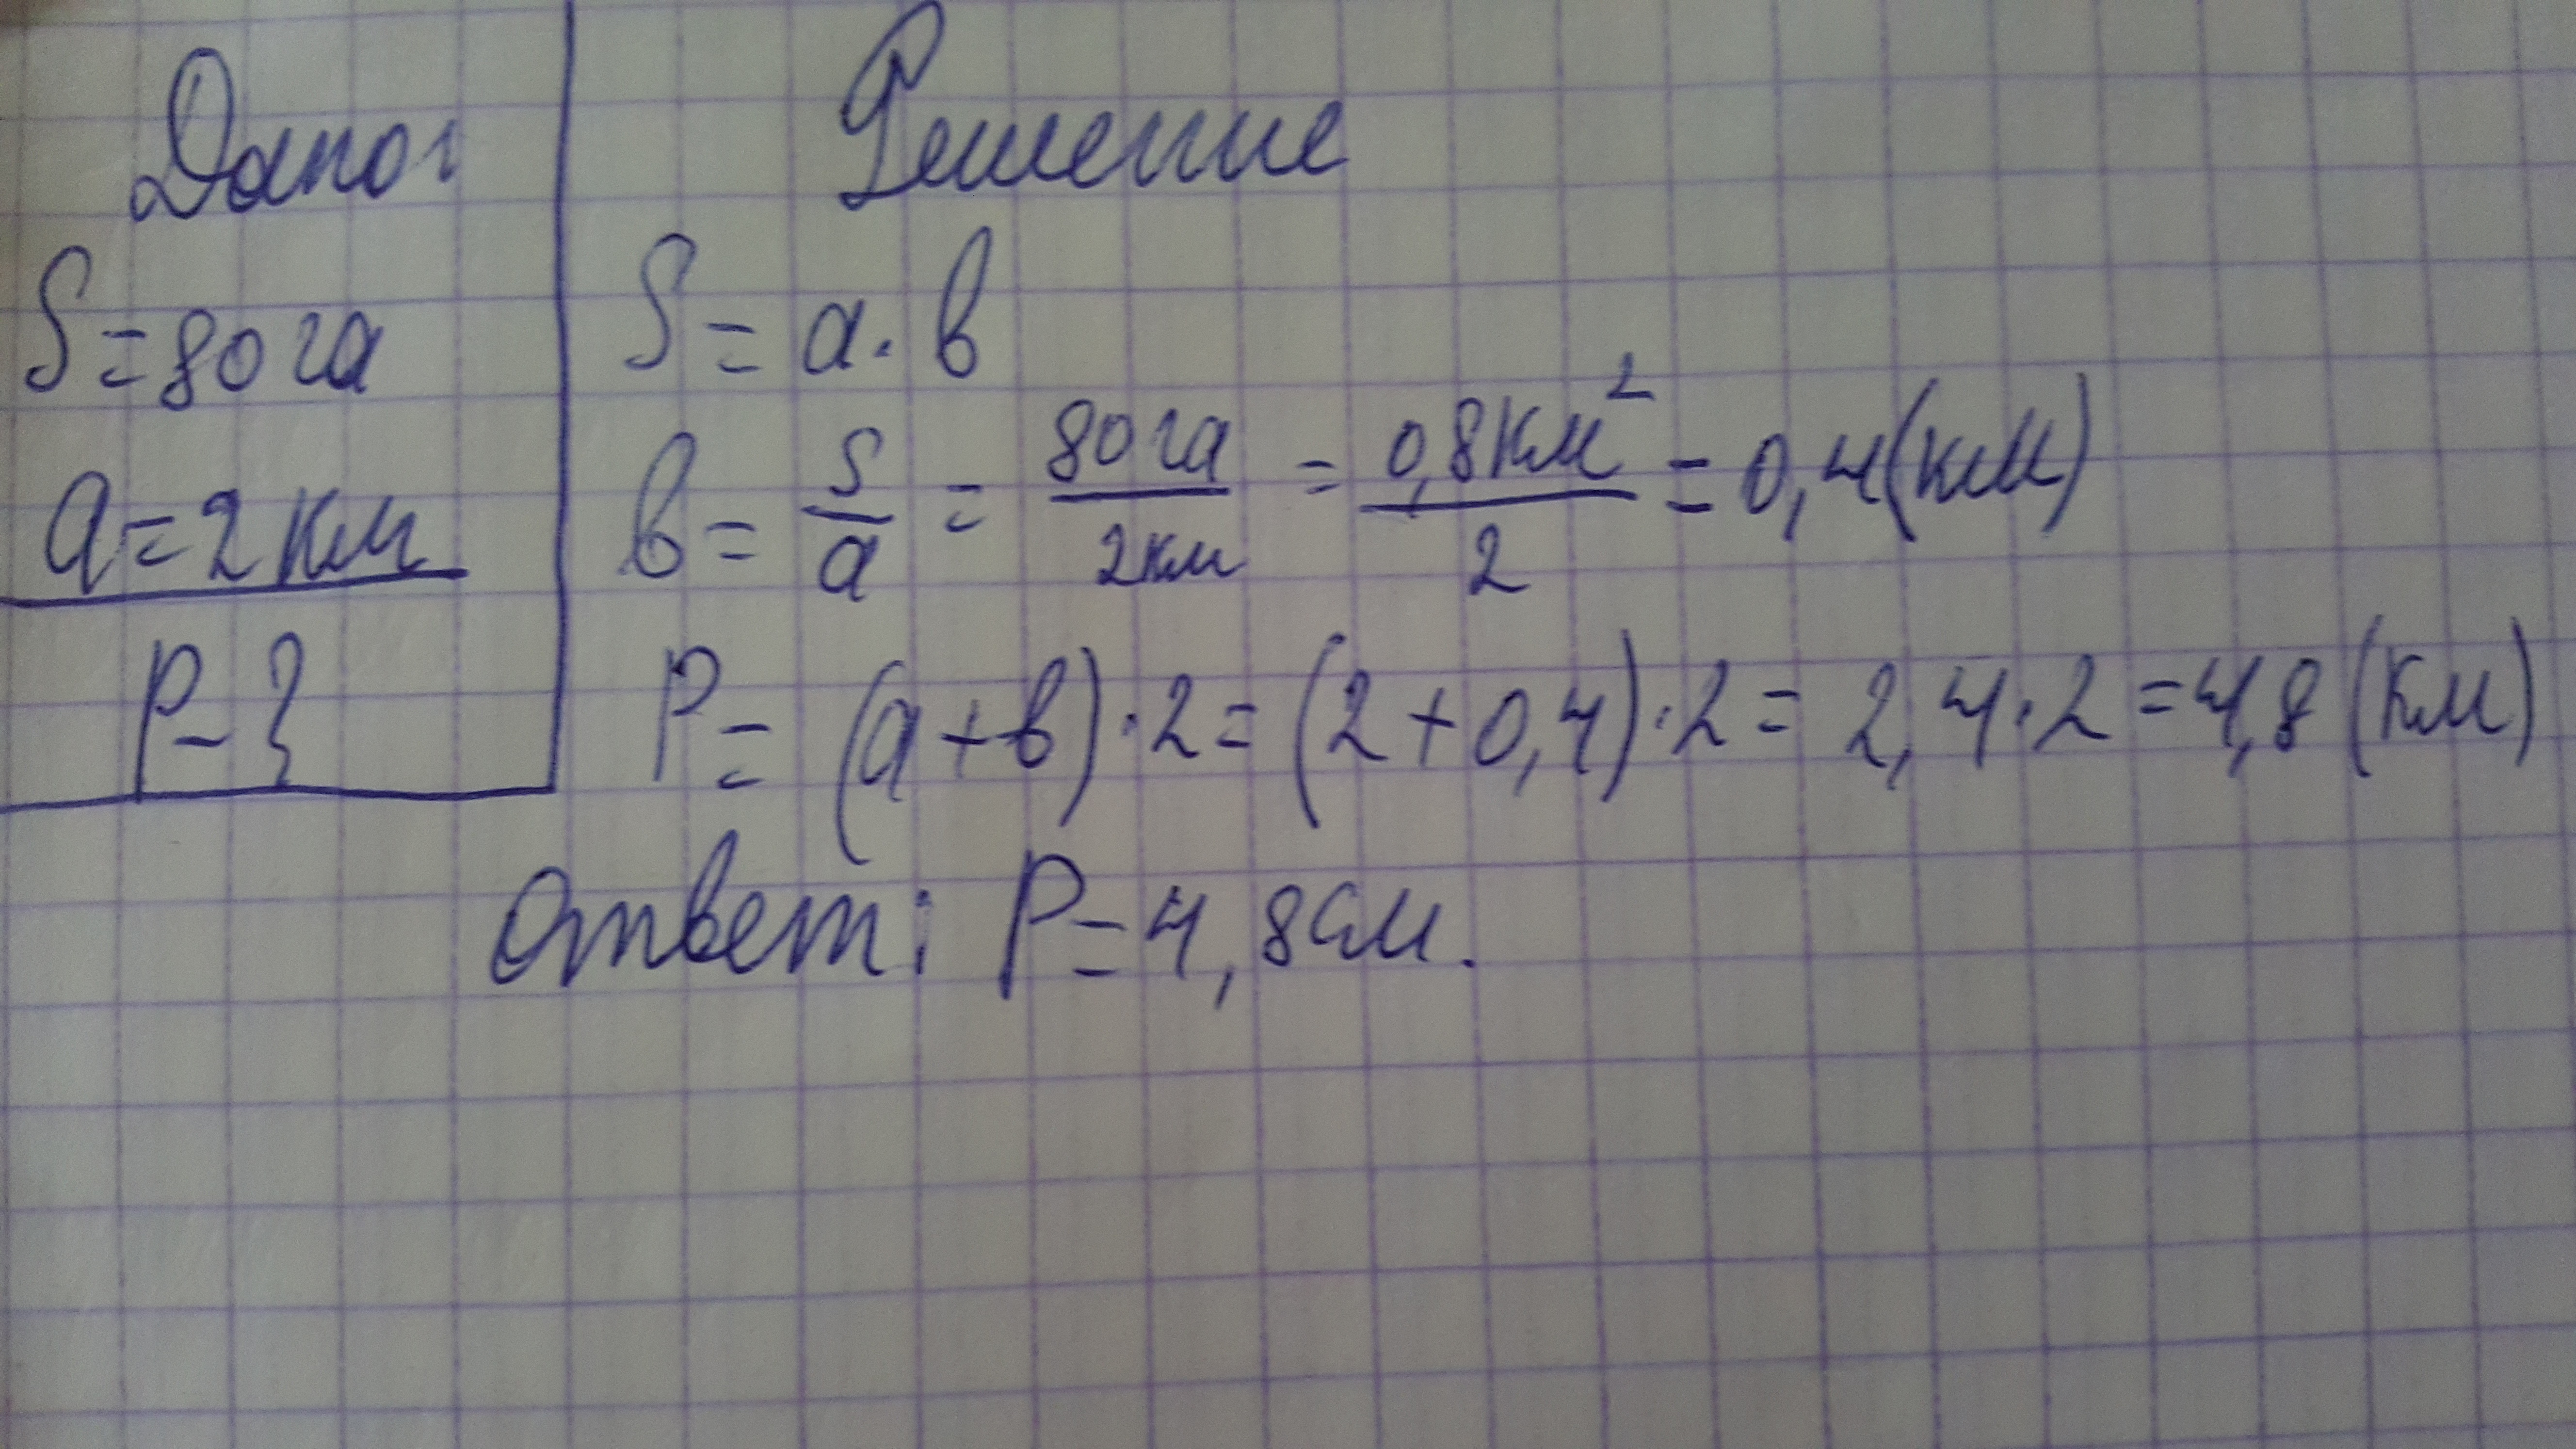 Дано:
S = 80 га
a = 2 км
P - ?
Решение
S = a · b
b = S/a = 80 га/2 км = 0,8 км²/2 = 0,4 (км)
P = (a + b) · 2 = (2 + 0,4) · 2 = 2,4 · 2 = 4,8 (км)
Ответ: P = 4,8 см.